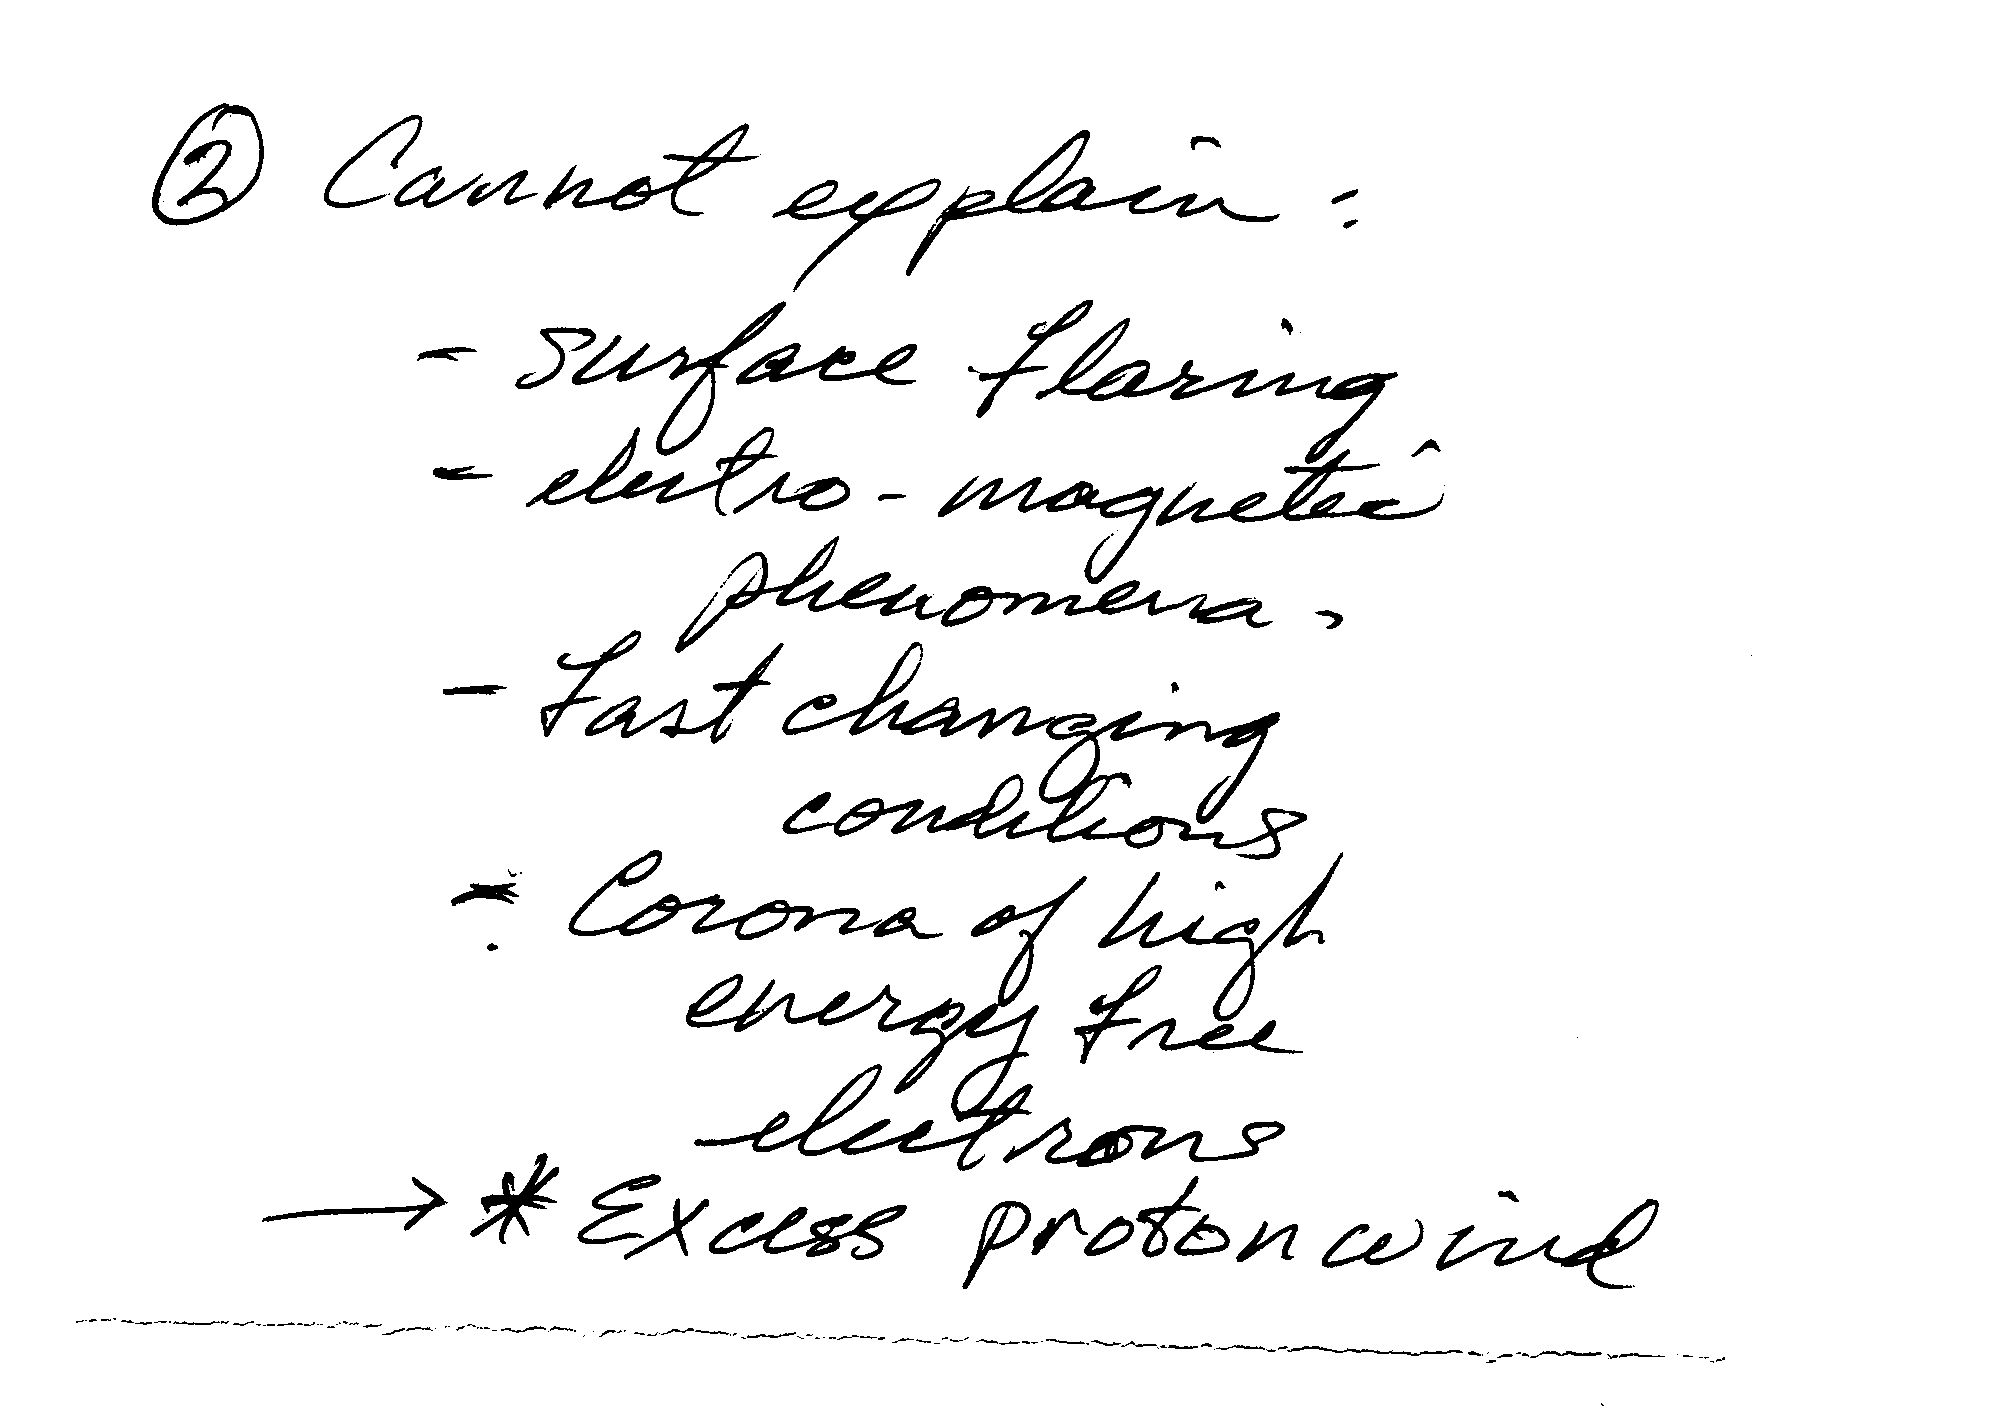 ② Cannot explain:
- surface flaring
- electro-magnetic
phenomena.
- Fast changing
conditions
- Corona of high
energy free
electrons
→ * Excess proton wind